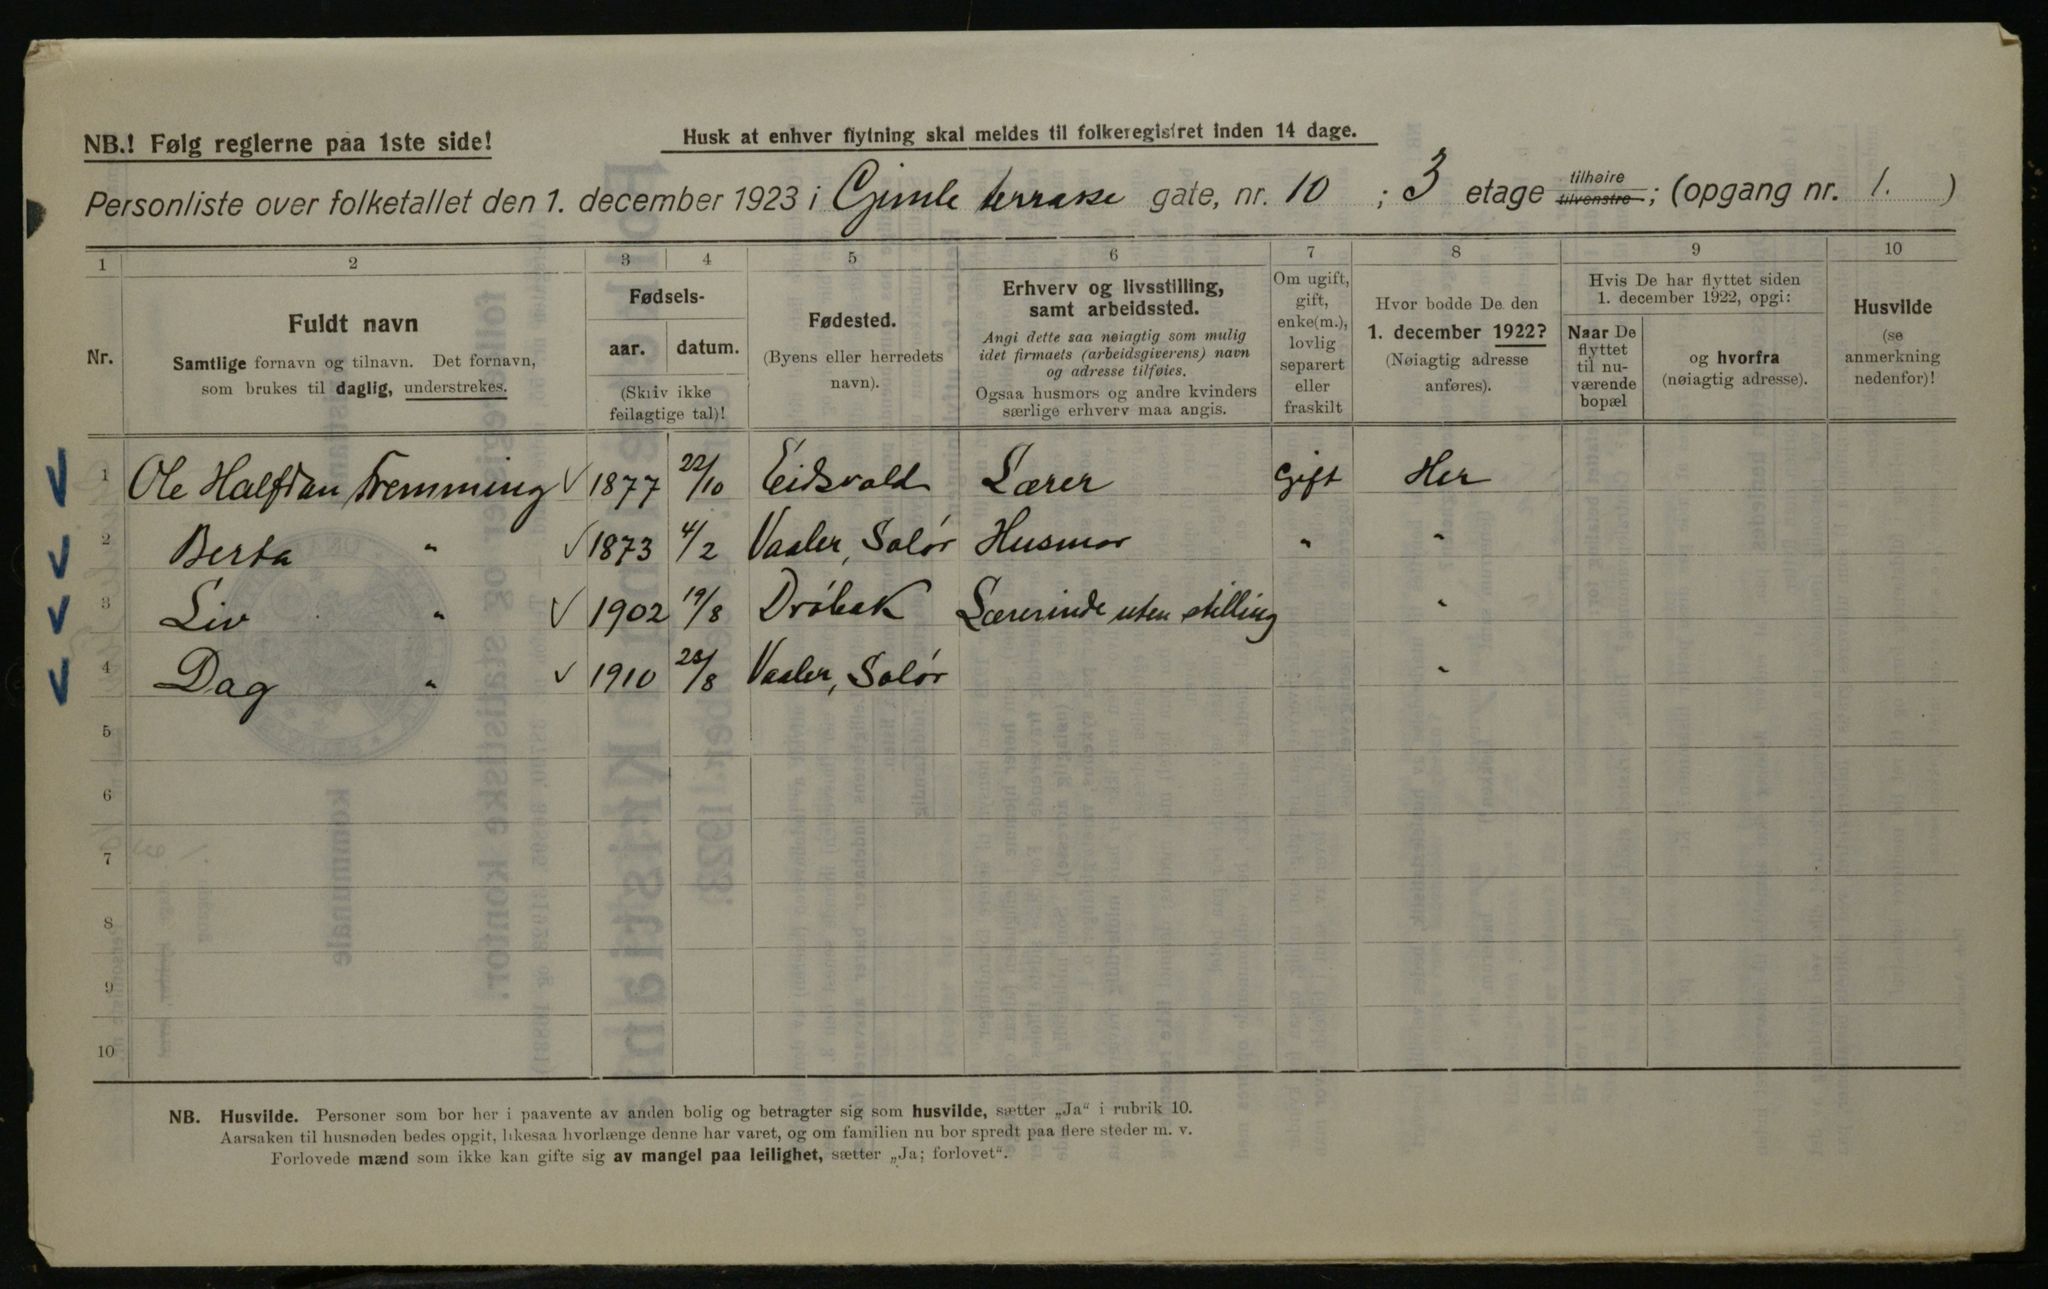 NB.! Følg reglerne paa 1ste side!
Husk at enhver flytning skal meldes til folkeregistret inden 14 dage.
Personliste over folketallet den 1. december 1923 i Gimle terrasse gate, nr. 10 ; 3 etage tilhøire tilvenstre ; (opgang nr. 1. )
1 2 3 4 5 6 7 8 9 10
Nr.
Fuldt navn
Samtlige fornavn og tilnavn. Det fornavn,
som brukes til daglig, understrekes.
Fødsels-
aar. datum.
(Skriv ikke
feilagtige tal)!
Fødested.
(Byens eller herredets
navn).
Erhverv og livsstilling,
samt arbeidssted.
Angi dette saa nøiagtig som mulig
idet firmaets (arbeidsgiverens) navn
og adresse tilføies.
Ogsaa husmors og andre kvinders
særlige erhverv maa angis.
Om ugift,
gift,
enke(m.),
lovlig
separert
eller
fraskilt
Hvor bodde De den
1. december 1922?
(Nøiagtig adresse
anføres).
Hvis De har flyttet siden
1. december 1922, opgi:
Naar De
flyttet
til nu-
værende
bopæl
og hvorfra
(nøiagtig adresse).
Husvilde
(se
anmerkning
nedenfor)!
1 Ole Halfdan Fremming 1877 22/10 Eidsvold Lærer Gift Her
2 Berta " 1873 4/2 Vaaler, Solør Husmor " "
3 Liv " 1902 19/8 Drøbak Lærerinde uten stilling "
4 Dag " 1910 28/8 Vaaler, Solør "
5
6
7
8
9
10
NB. Husvilde. Personer som bor her i paavente av anden bolig og betragter sig som husvilde, sætter „Ja" i rubrik 10.
Aarsaken til husnøden bedes opgit, likesaa hvorlænge denne har varet, og om familien nu bor spredt paa flere steder m. v.
Forlovede mænd som ikke kan gifte sig av mangel paa leilighet, sætter „Ja; forlovet".